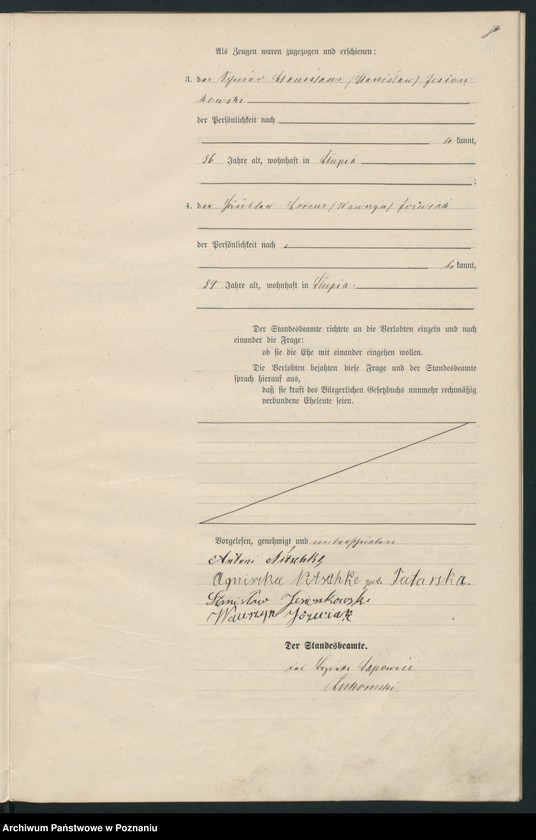 8
Als Zeugen waren zugezogen und erschienen:
3. der Stanislaus (Stanisław) Jesion-
kowski
der Persönlichkeit nach
kannt,
36 Jahre alt, wohnhaft in Słupia
;
4. der Häusler Lorenz (Wawrzyn) Józwiak
der Persönlichkeit nach
kannt,
Jahre alt, wohnhaft in Słupia
Der Standesbeamte richtete an die Verlobten einzeln und nach
einander die Frage:
ob sie die Ehe mit einander eingehen wollen.
Die Verlobten bejahten diese Frage und der Standesbeamte
sprach hierauf aus,
daß sie kraft des Bürgerlichen Gesetzbuchs nunmehr rechtmäßig
verbundene Eheleute seien.
Vorgelesen, genehmigt und unterschrieben
Antoni Nitschke
Agnieszka Nitschke geb. Tatarska.
Stanisław Jesionkowski
Wawrzyn Józwiak
Der Standesbeamte.
Łukomski.
Archiwum Państwowe w Poznaniu